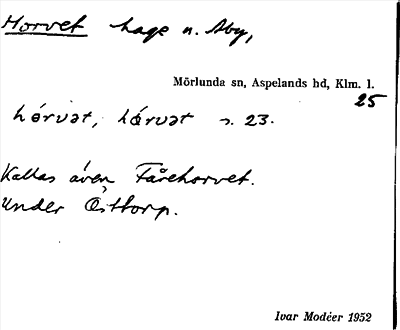 Horvet hage n. Åby,
Mörlunda sn, Aspelands hd, Klm. l.
25
hórvət, hárvət s. 23.
Kallas även Fårehorvet.
Under Östtorp.
Ivar Modéer 1952